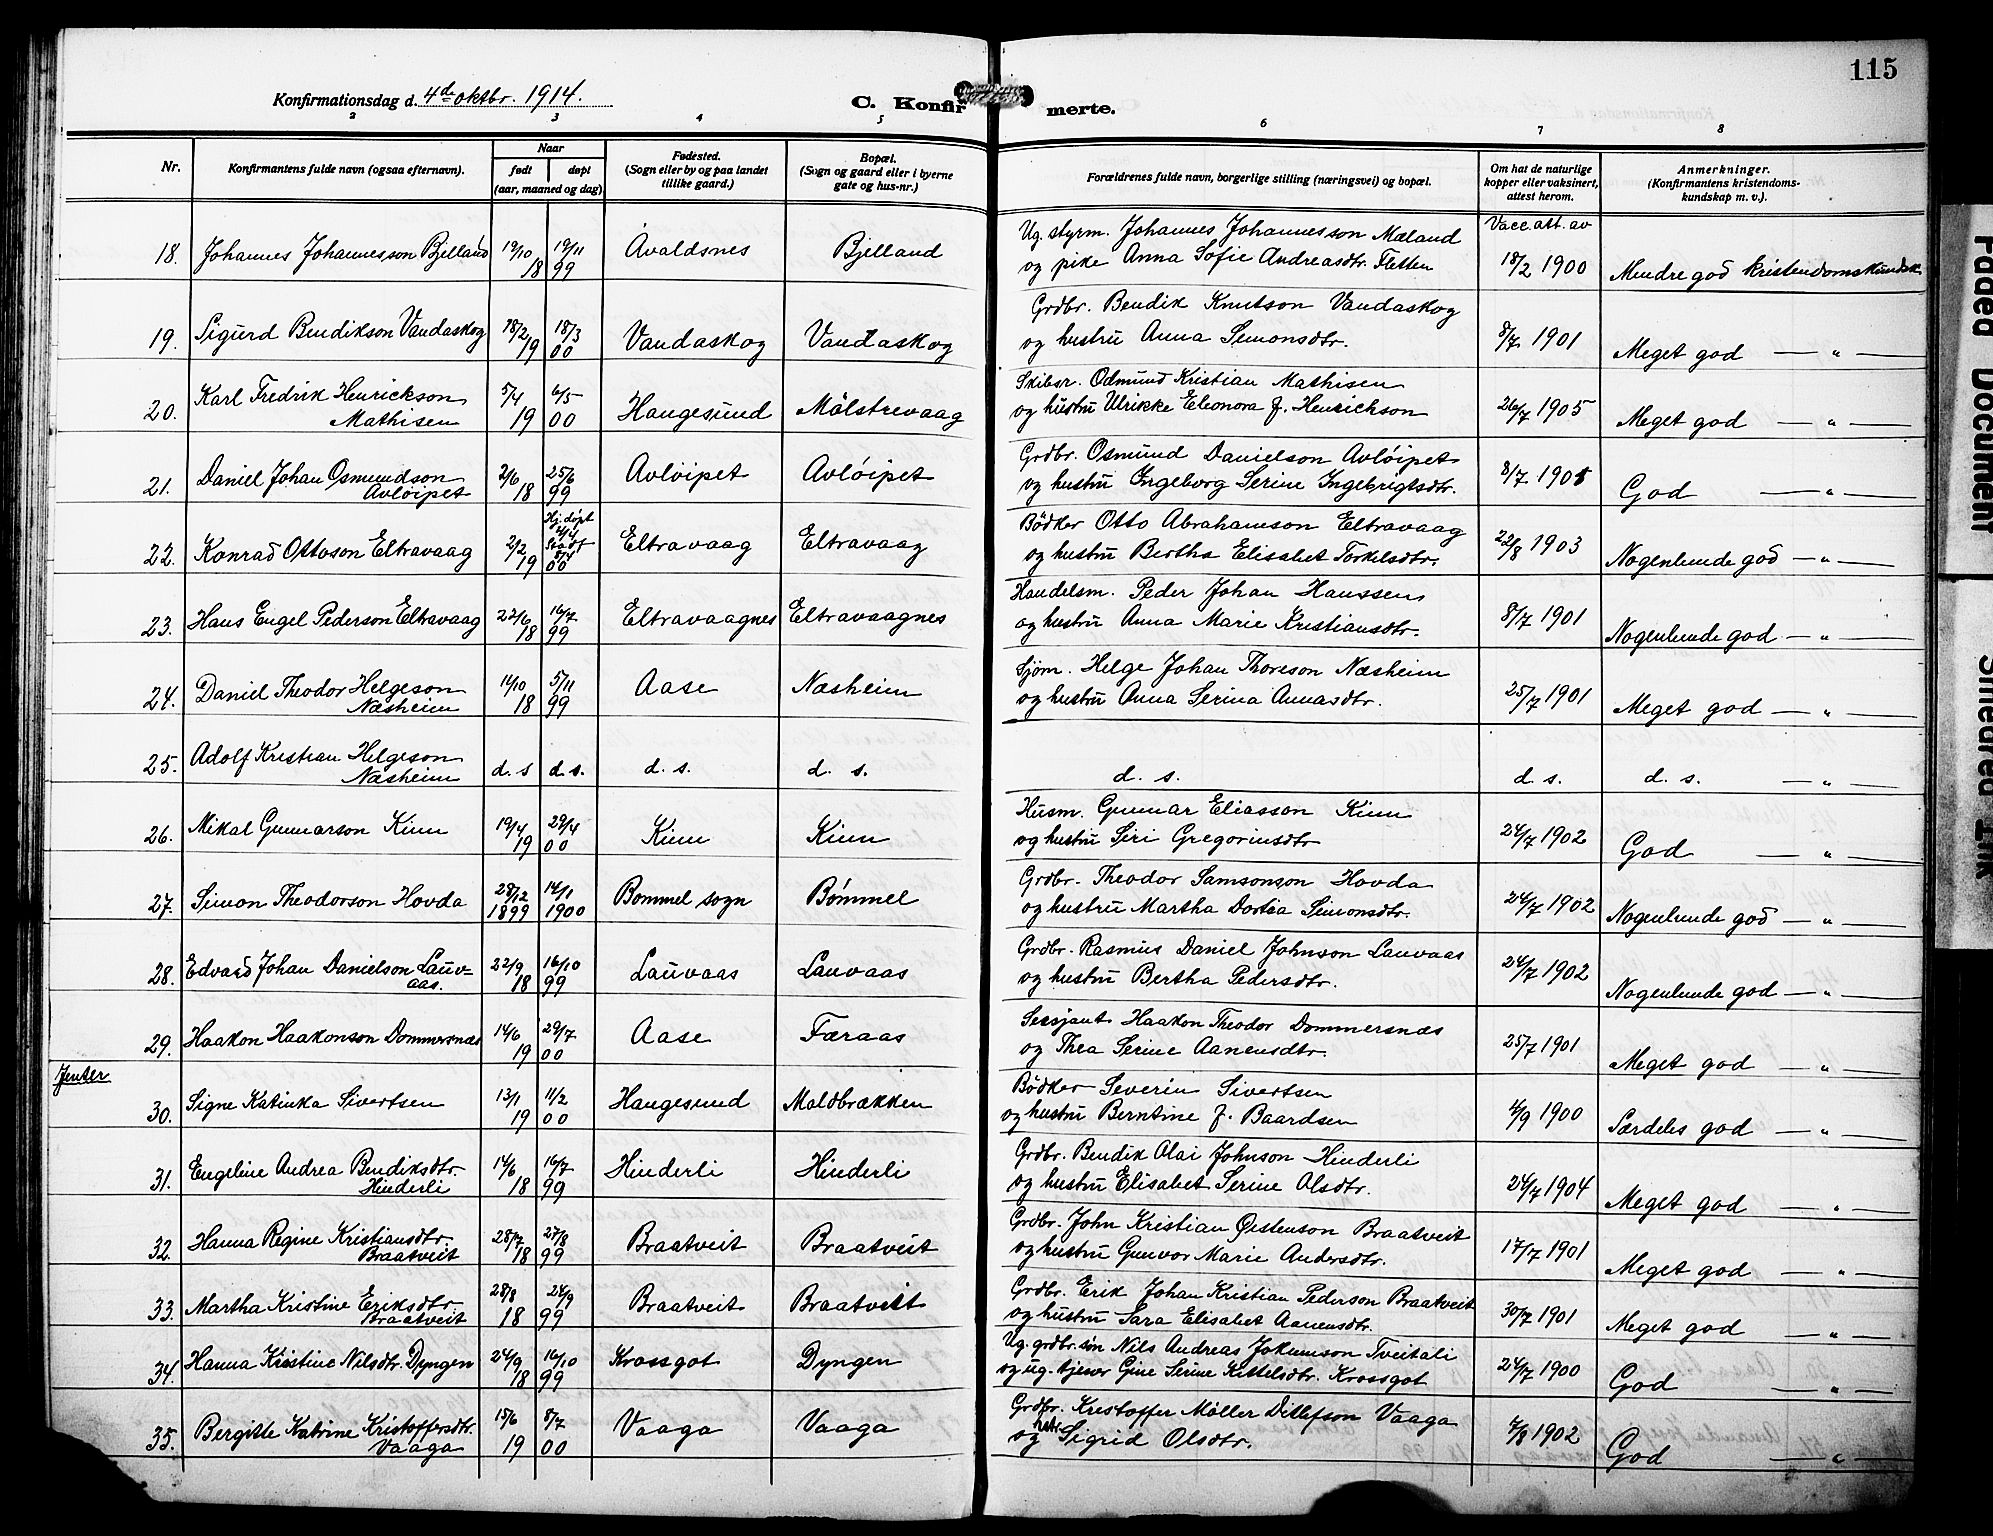 115
Konfirmationsdag d. 4de oktbr. 1914.
C. Konfirmerte.
2 3 4 5 6 7 8
Nr.
Konfirmantens fulde navn (ogsaa efternavn).
Naar
født døpt
(aar, maaned og dag)
Fødested.
(Sogn eller by og paa landet
tillike gaard.)
Bopæl.
(Sogn og gaard eller i byerne
gate og hus-nr.)
Forældrenes fulde navn, borgerlige stilling (næringsvei) og bopæl.
Om hat de naturlige
kopper eller vaksinert,
attest herom.
Anmerkninger.
(Konfirmantens kristendoms-
kundskap m. v.).
Vacc. att. av
18. Johannes Johannesson Bjelland 19/10 18 19/11 99 Avaldsnes Bjelland
Ug. styrm. Johannes Johannesson Mæland
og pike Anna Sofie Andreasdtr. Fletten 18/2 1900 Mendre god kristendomskundsk.
19. Sigurd Bendikson Vandaskog 18/2 19 18/3 00 Vandaskog Vandaskog
Grdbr. Bendik Knutson Vandaskog
og hustru Anna Simonsdtr. 8/7 1901 Meget god — " —
20. Karl Fredrik Henrickson
Mathisen 5/4 19 6/5 00 Haugesund Mølstrevaag
Skibsr. Odmund Kristian Mathisen
og hustru Ulrikke Eleonora f. Henrichson 26/7 1905 Meget god — " —
21. Daniel Johan Osmundson
Avløipet 2/6 18 25/6 99 Avløipet Avløipet
Grdbr. Osmund Danielson Avløipet
og hustru Ingeborg Serine Ingebrigtsdtr. 8/7 1901 God — " —
22. Konrad Ottoson Eltravaag 2/2 19 Hj. døpt
00 Eltravaag Eltravaag
Bødker Otto Abrahamson Eltravaag
og hustru Bertha Elisabet Torkelsdtr. 22/8 1903 Nogenlunde god — " —
23. Hans Engel Pederson Eltravaag 22/6 18 16/7 99 Eltravaagnes Eltravaagnes
Handelsm. Peder Johan Hanssen
og hustru Anna Marie Kristiansdtr. 8/7 1901 Nogenlunde god — " —
24. Daniel Theodor Helgeson
Næsheim 14/10 18 5/11 99 Aase Næsheim
Sjøm. Helge Johan Thoreson Næsheim
og hustru Anna Serina Annasdtr. 25/7 1901 Meget god — " —
25. Adolf Kristian Helgeson
Næsheim d. s d. s. d. s. d. s. d. s. d. s. d. s. — " —
26. Mikal Gunnarson Kinn 19/4 19 29/4 00 Kinn Kinn
Husm. Gunnar Eliasson Kinn
og hustru Siri Gregoriusdtr 24/7 1902 God — " —
27. Simon Theodorson Hovda 28/12 1899 14/1 1900 Bommel sogn Bømmel
Grdbr. Theodor Samsonson Hovda
og hustru Martha Dortea Simonsdtr. 24/7 1902 Nogenlunde god — " —
28. Edvard Johan Danielson Lauv-
aas. 22/9 18 16/10 99 Lauvaas Lauvaas
Grdbr. Rasmus Daniel Johnson Lauvaas
og hustru Bertha Pedersdtr. 24/7 1902 Nogenlunde god — " —
29. Haakon Haakonson Dommersnæs 14/6 19 29/7 00 Aase Færaas
Sersjant Haakon Theodor Dommersnæs
og Thea Serine Aanensdtr. 25/7 1901 Meget god — " —
Jenter
30. Signe Katinka Sivertsen 13/1 19 11/2 00 Haugesund Moldbrækken
Bødker Severin Sivertsen
og hustru Berntine f. Baardsen 4/9 1900 Særdeles god — " —
31. Engeline Andrea Bendiksdtr.
Hinderli 14/6 18 16/7 99 Hinderli Hinderli
Grdbr. Bendik Olai Johnson Hinderli
og hustru Elisabet Serine Olsdtr. 24/7 1904 Meget god — " —
32. Hanna Regine Kristiansdtr.
Braatveit 28/7 18 27/8 99 Braatveit Braatveit
Grdbr. John Kristian Østenson Braatveit
og hustru Gunvor Marie Andersdtr. 17/7 1901 Meget god — " —
33. Martha Kristine Eriksdtr.
Braatveit 28/8 18 24/9 99 Braatveit Braatveit
Grdbr. Erik Johan Kristian Pederson Braatveit
og hustru Sara Elisabet Aanensdtr. 30/7 1901 Meget god — " —
34. Hanna Kristine Nilsdtr. Dyngen 24/9 18 16/10 99 Krossgot Dyngen
Ug. grdbr. søn Nils Andreas Jokumson Tveitali
og ug. tjener Gine Serine Kittelsdtr. Krossgot 24/7 1900 God — " —
35. Bergitte Katrine Kristoffersdtr.
Vaaga 15/6 19 8/7 00 Vaaga Vaaga
Grdbr. Kristoffer Møller Ditlefson Vaaga
og hstr. Sigrid Olsdtr. 7/8 1902 God — " —
Faded Document
Smeared Ink